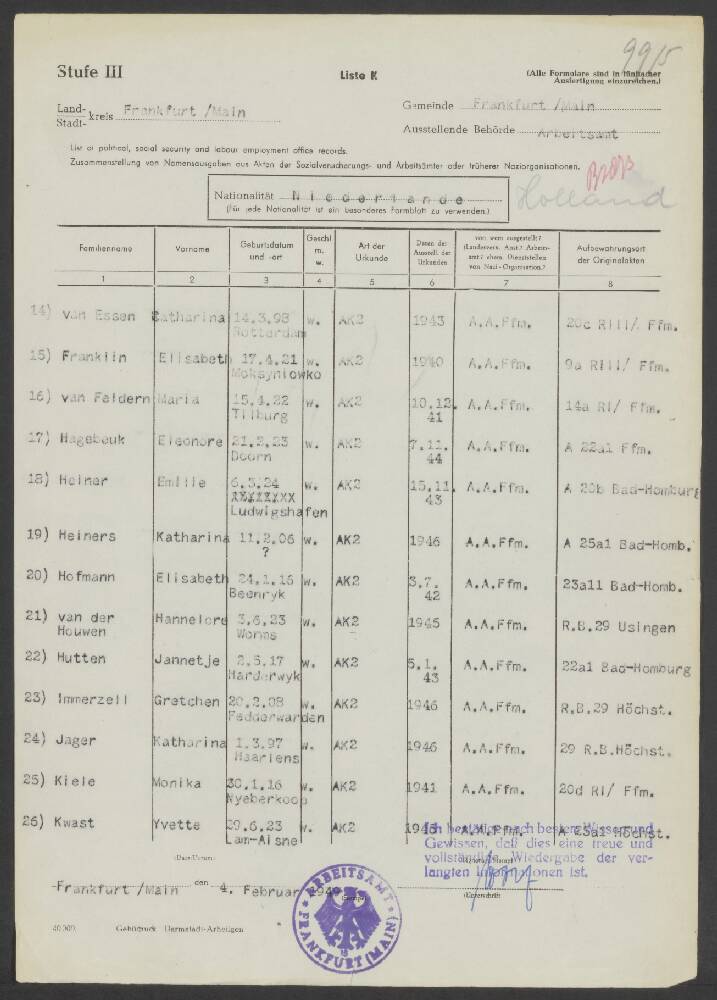 99/5
Stufe III
Liste K
(Alle Formulare sind in fünffacher Ausfertigung einzureichen.)
Land- Stadt- kreis Frankfurt /Main
Gemeinde Frankfurt /Main
Ausstellende Behörde Arbeitsamt
List of political, social security and labour employment office records.
Zusammenstellung von Namensausgaben aus Akten der Sozialversicherungs- und Arbeitsämter oder früherer Naziorganisationen.
Nationalität Niederlande
(Für jede Nationalität ist ein besonderes Formblatt zu verwenden.)
Holland
Familienname | Vorname | Geburtsdatum und -ort | Geschl. m. w. | Art der Urkunde | Daten der Ausstell. der Urkunden | von wem ausgestellt? (Landesvers. Amt? Arbeitsamt? ehem. Dienststellen von Nazi-Organisation? | Aufbewahrungsort der Originalakten
1 2 3 4 5 6 7 8
14) van Essen Catharina 14.3.98 w. AK2 1943 A.A.Ffm. 20c RIII/ Ffm.
Rotterdam
15) Franklin Elisabeth 17.4.21 w. AK2 1940 A.A.Ffm. 9a RIII/ Ffm.
Moksyniowko
16) van Feldern Maria 15.4.22 w. AK2 10.12. A.A.Ffm. 14a RI/ Ffm.
Tilburg 41
17) Hagebeuk Eleonore 21.2.23 w. AK2 7.11. A.A.Ffm. A 22a1 Ffm.
Doorn 44
18) Heiner Emilie 6.5.24 w. AK2 15.11. A.A.Ffm. A 20b Bad-Homburg
Ludwigshafen 43
19) Heiners Katharina 11.2.06 w. AK2 1946 A.A.Ffm. A 25a1 Bad-Homb.
?
20) Hofmann Elisabeth 24.1.16 w. AK2 3.7. A.A.Ffm. 23a11 Bad-Homb.
Beenryk 42
21) van der Hannelore 3.6.23 w. AK2 1945 A.A.Ffm. R.B.29 Usingen
Houwen Worms
22) Hutten Jannetje 2.5.17 w. AK2 5.1. A.A.Ffm. 22a1 Bad-Homburg
Harderwyk 43
23) Immerzeil Gretchen 20.2.08 w. AK2 1946 A.A.Ffm. R.B.29 Höchst.
Fedderwarden
24) Jager Katharina 1.3.97 w. AK2 1946 A.A.Ffm. 29 R.B.Höchst.
Haarlens
25) Kiele Monika 30.1.16 w. AK2 1941 A.A.Ffm. 20d RI/ Ffm.
Nyeberkoop
26) Kwast Yvette 29.6.23 w. AK2 A.A.Ffm. A 25a1 Höchst.
Lam-Aisne
Ich bestätige nach bestem Wissen und
Gewissen, daß dies eine treue und
vollständige Wiedergabe der ver-
langten Informationen ist.
Frankfurt /Main den 4. Februar 1949
(Unterschrift)
ARBEITSAMT FRANKFURT (MAIN)
40 000. Gebüdruck Darmstadt-Arheilgen